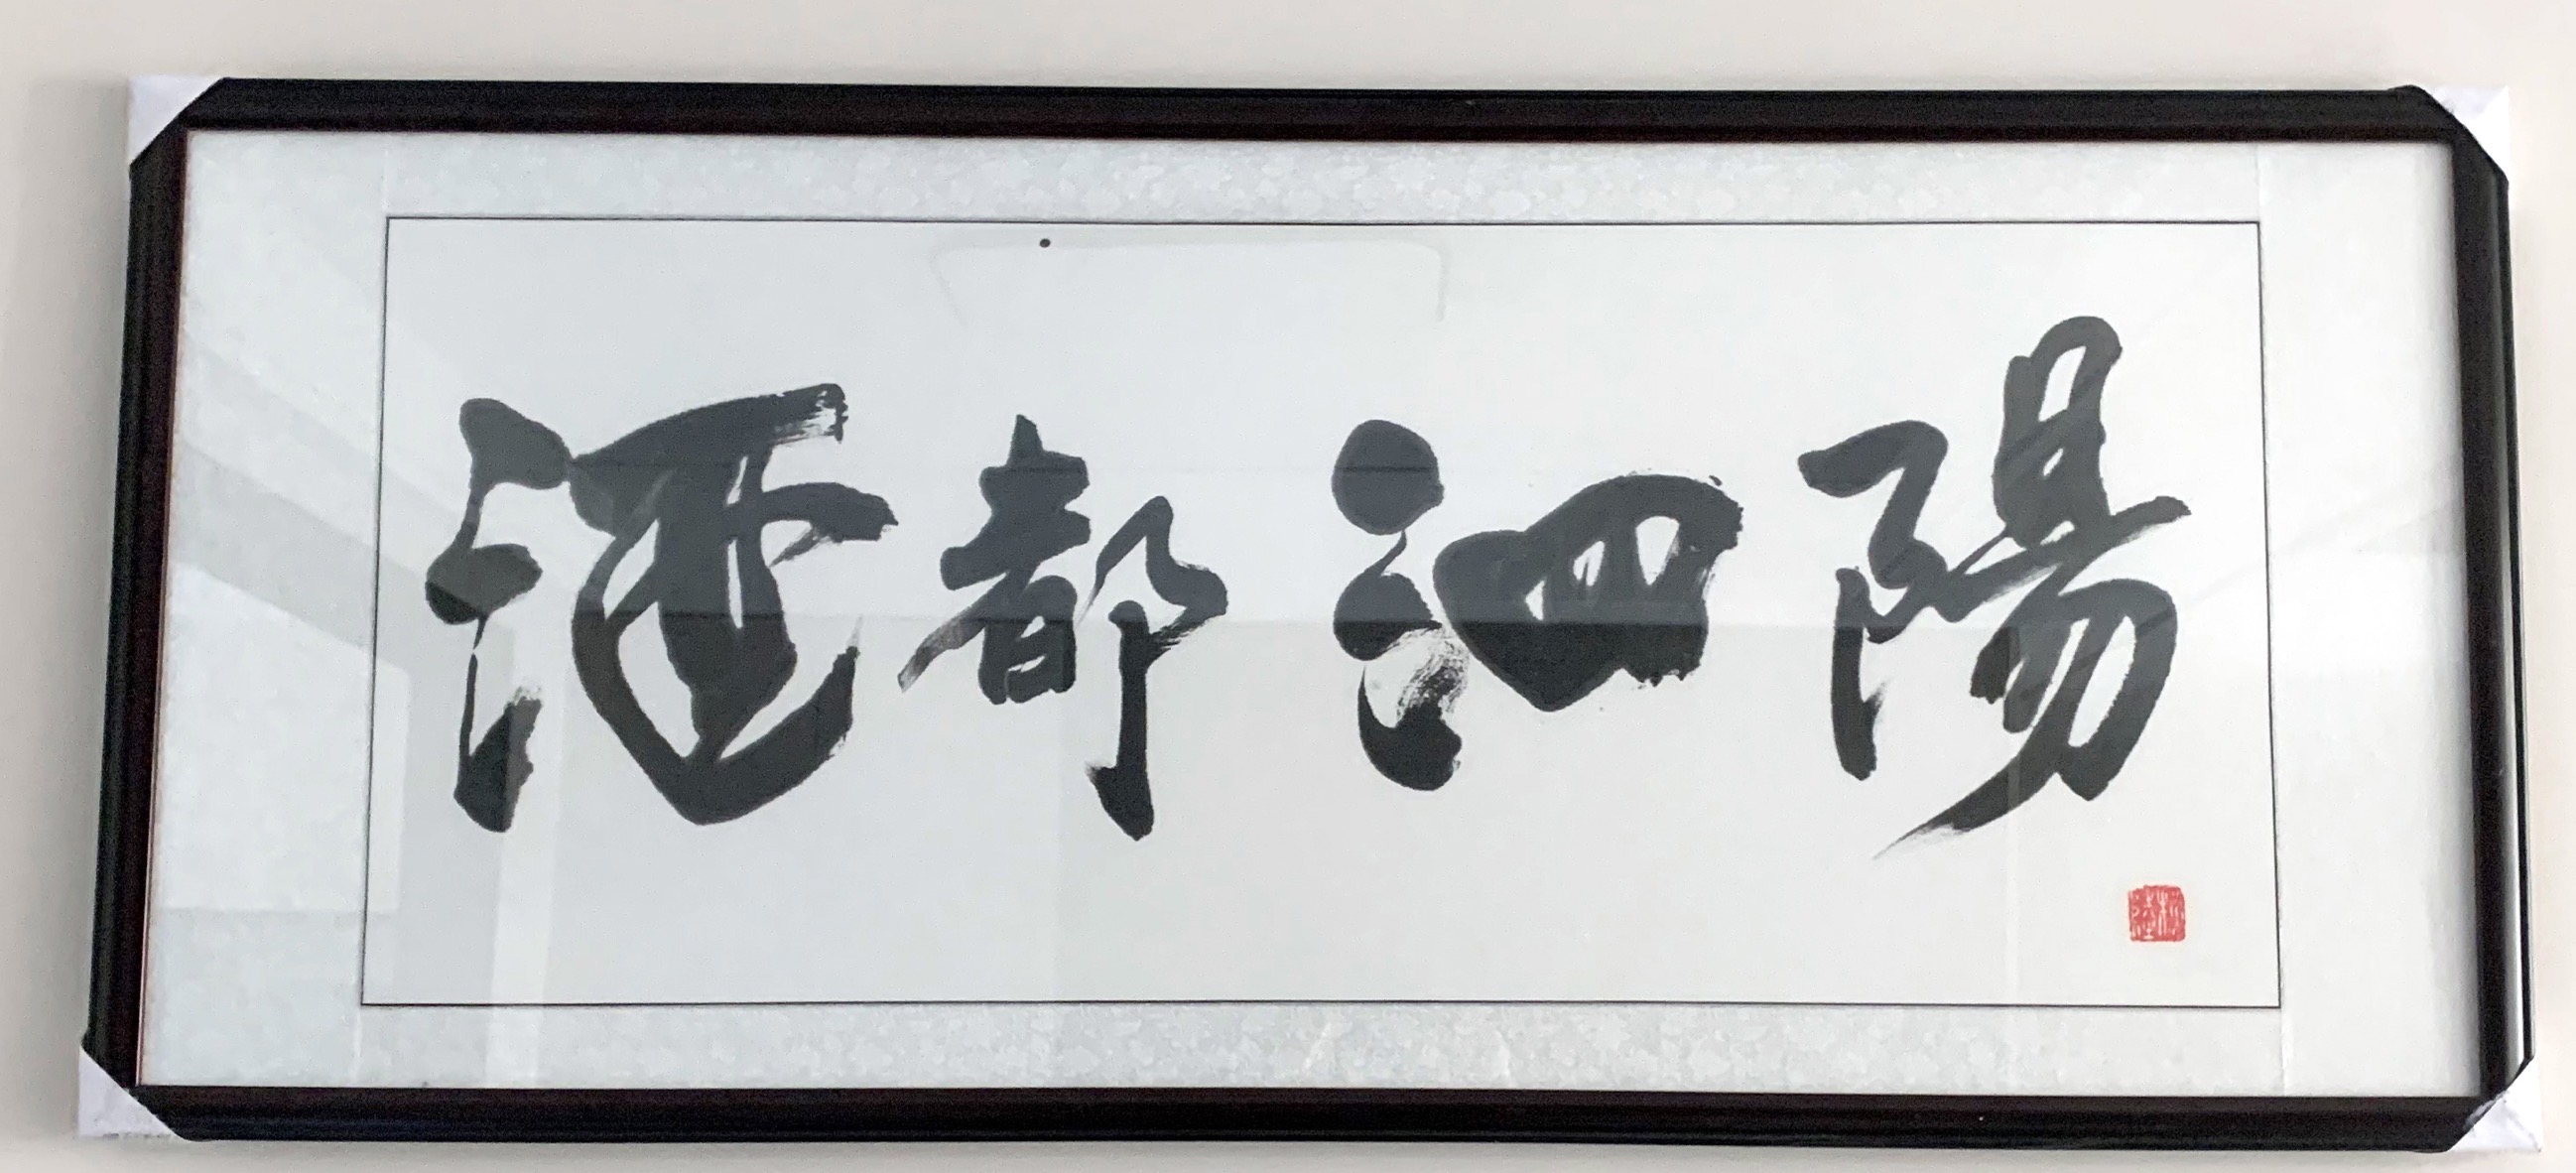 酒都泗陽